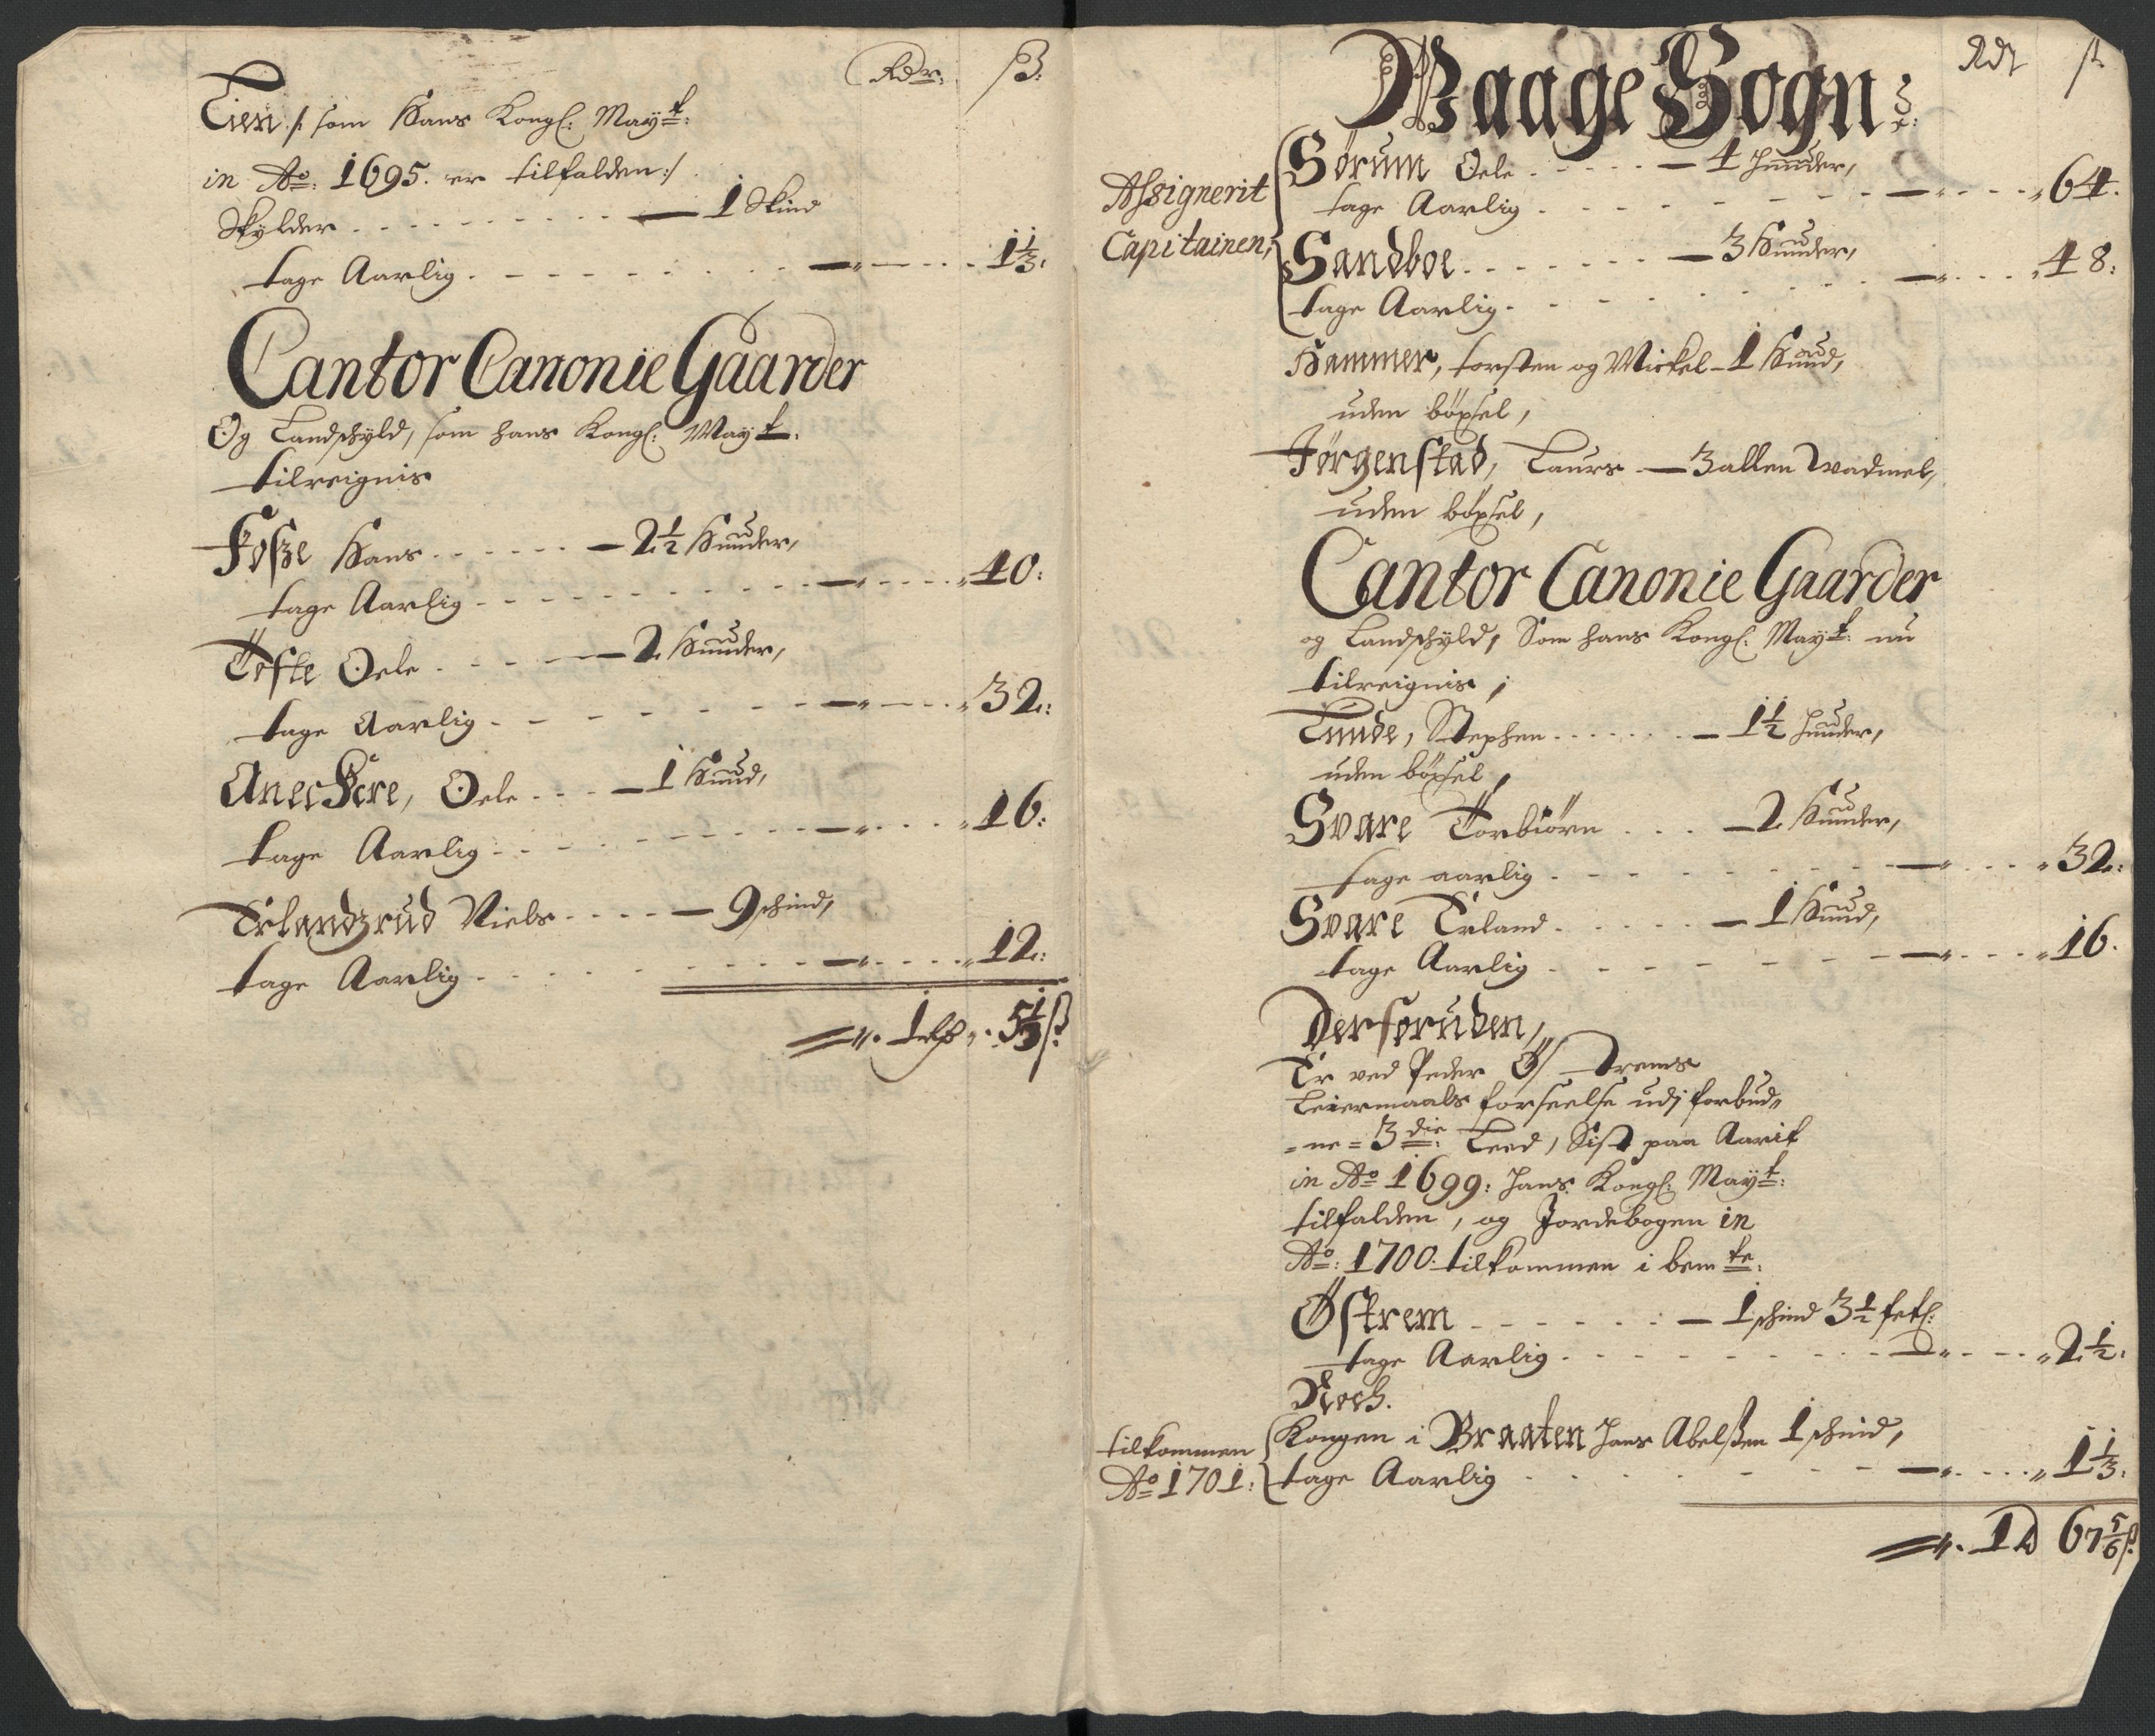 Rdr: ß:
Tien /: som Hans Kongl: Mayt:
in Ao: 1695. er tilfalden :/
Skylder — 1 Skind
tage Aarlig — „ — 1 1/3:
Cantor Canonie Gaarder
Og Landschyld, som hans Kongl: Mayt:
tilreignis
Foße Hans — 2 1/2 Hunder,
tage Aarlig — „ — „ 40:
Tofte Oele — 2 Hunder,
tage Aarlig — „ — „ 32:
Oele — 1 Hund,
tage Aarlig — „ — „ 16:
Erlandzrud Niels — 9 schind,
tage Aarlig — „ — „ 12:
1 5 1/3 ß
Waage Sogn: Rdr ß
Assignerit
Capitainen,
Sørum Oele — 4 Hunder,
tage Aarlig — „ — „ 64.
Sandboe — 3 Hunder,
tage Aarlig — „ — „ 48:
Hammer, torsten og Mickel — 1 Hund,
uden böxsel,
Jørgenstad, Laurs — 3 allen Wadmel,
uden böxsel,
Cantor Canonie Gaarder
og Landschyld, Som hans Kongl: Mayt: nu
tilreignis,
Tunde, Stephen — 1 1/2 Hunder,
uden böxsel,
Svare Torbiörn — 2 Hunder,
tage aarlig — „ — „ 32:
Svare Erland — 1 Hund,
tage Aarlig — „ — „ 16.
Derforuden,
Er ved Peder Ö/strems
Leiermaals forseelse udj forbud„
„ne = 3die: Leed, Sist paa Aarit
in Ao 1699: Hans Kongl: Mayt:
tilfalden, og Jordebogen in
Ao: 1700: tilkommen i bemte:
Östrem — 1 schind 3 1/2 fetl:
tage Aarlig — „ — „ 2 1/2:
Noch.
tilkommen
Ao 1701:
Kongen i Braaten Hans Abelßen 1 schind,
tage Aarlig — „ — „ 1 1/3:
1 D 67 5/6 ß